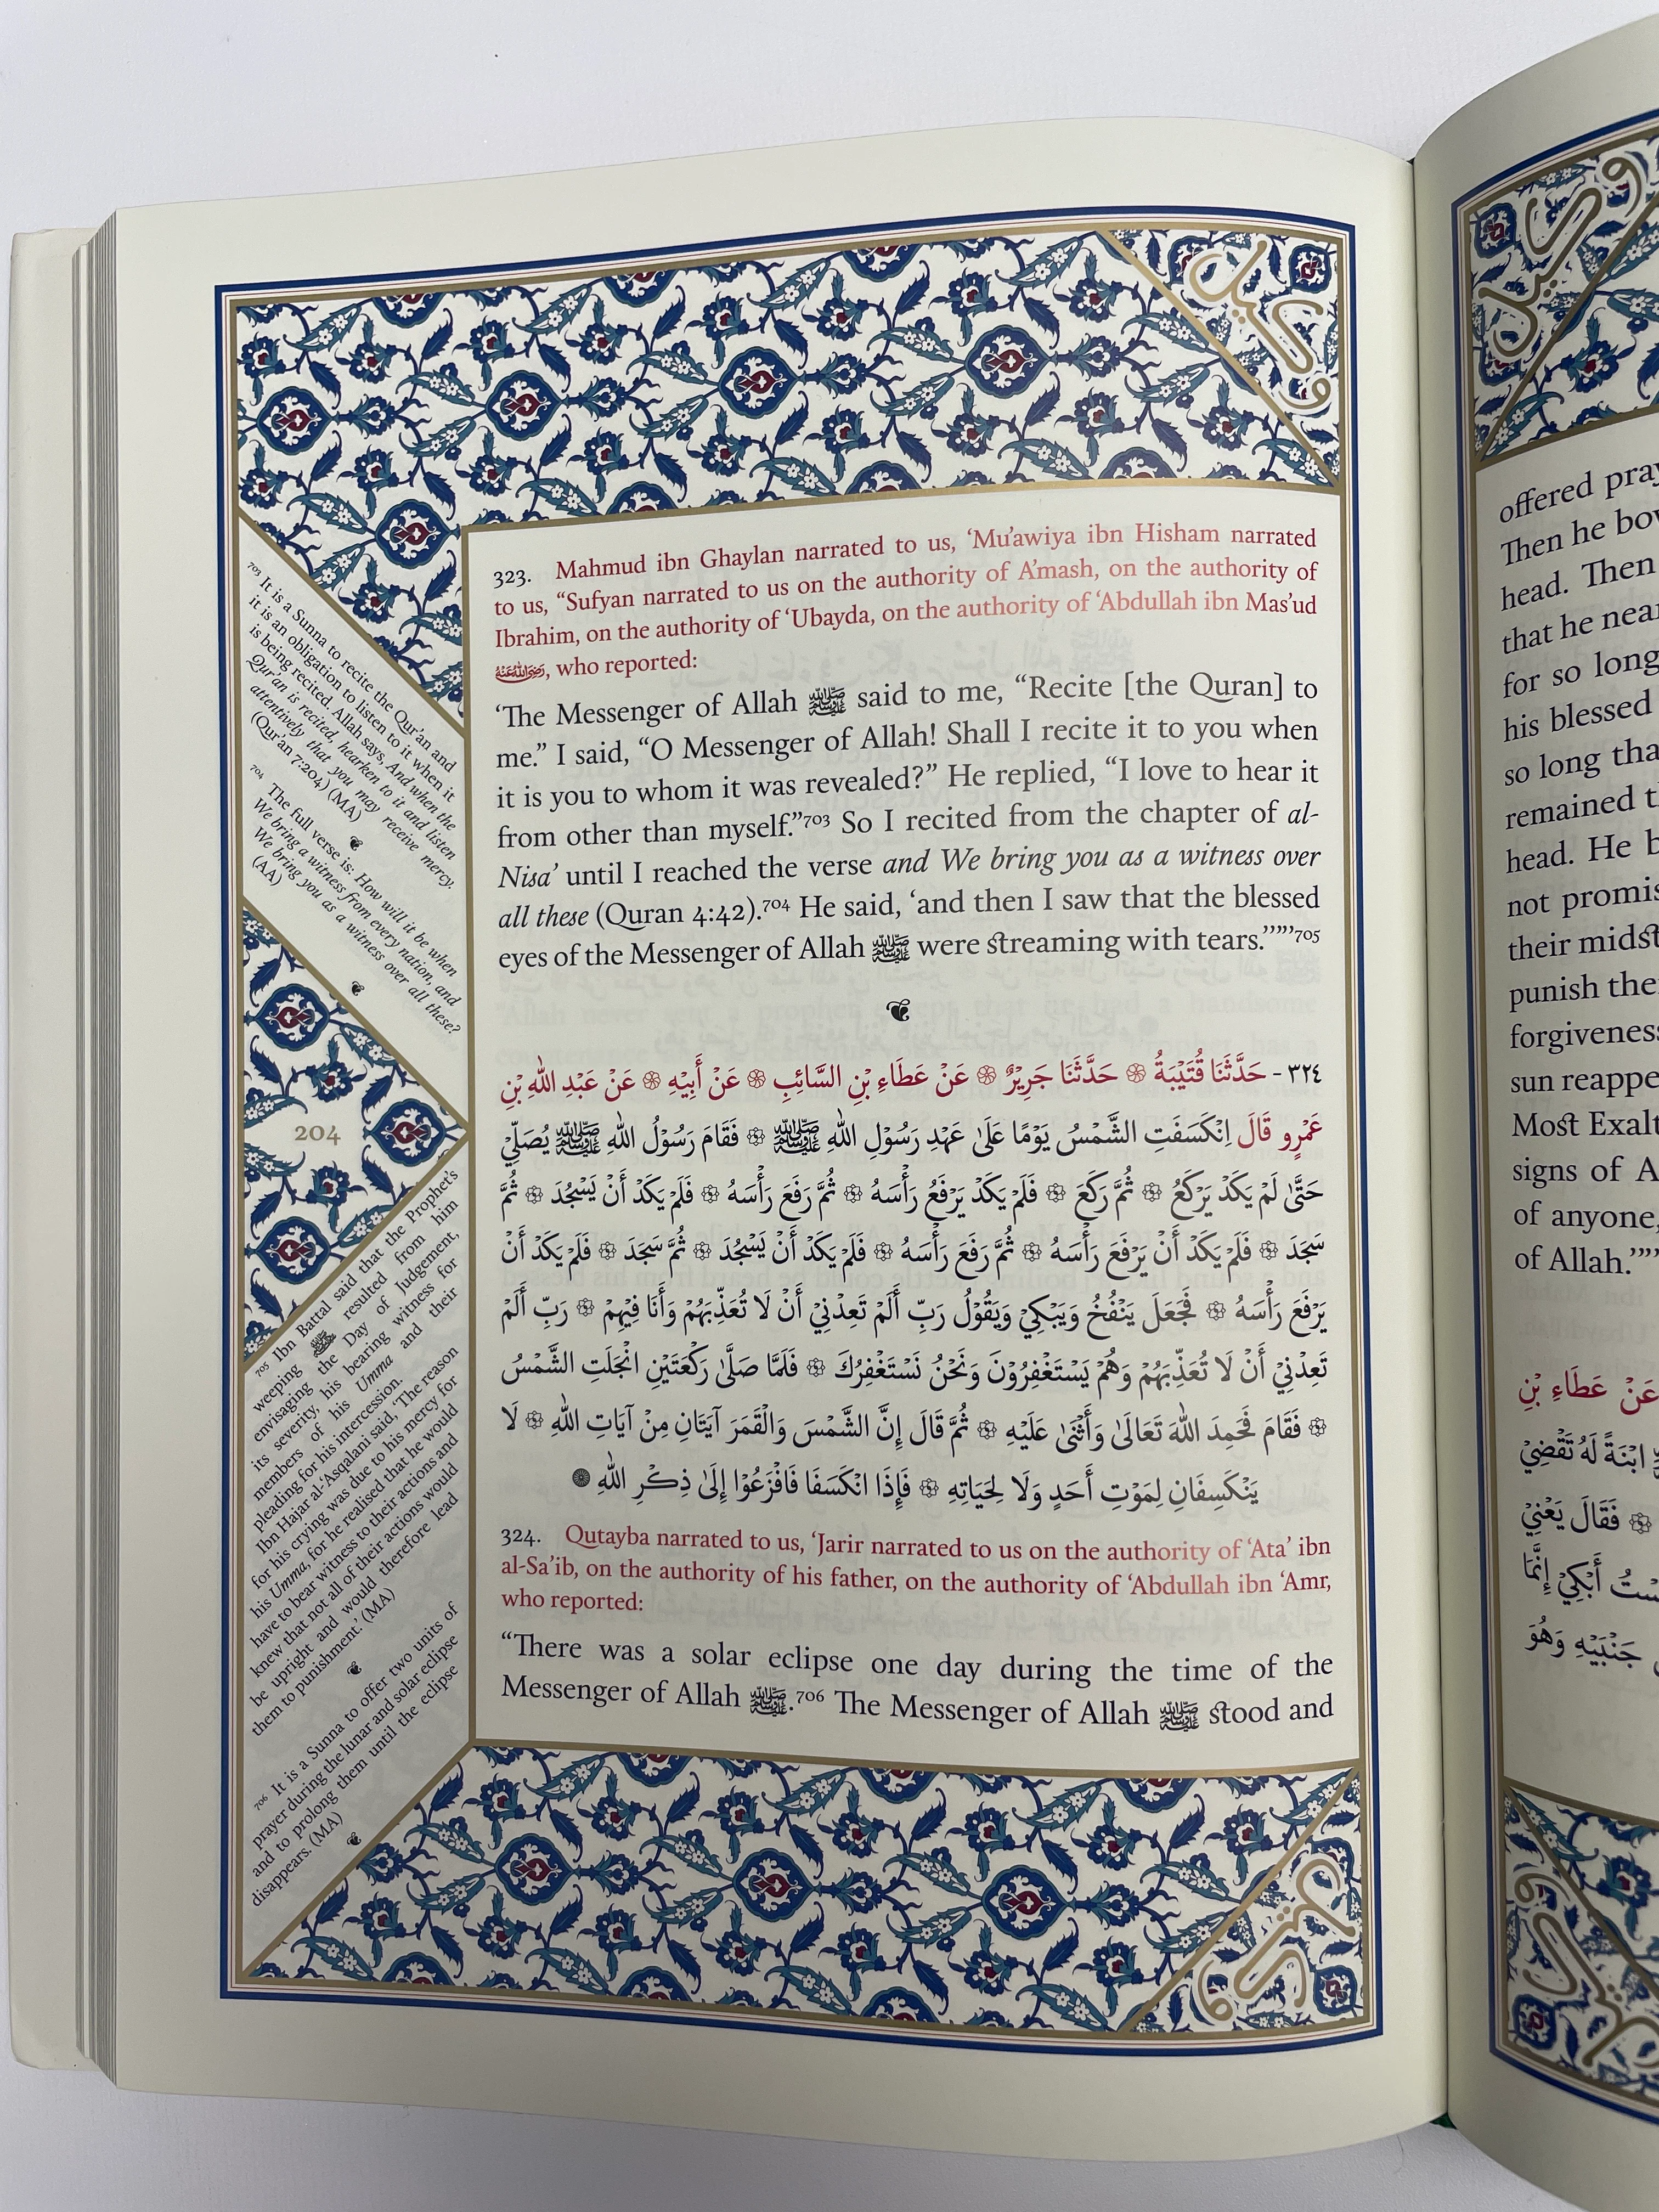 323. Mahmud ibn Ghaylan narrated to us, ‘Mu’awiya ibn Hisham narrated
to us, “Sufyan narrated to us on the authority of A’mash, on the authority of
Ibrahim, on the authority of ‘Ubayda, on the authority of ‘Abdullah ibn Mas’ud
رضي الله عنه, who reported:
‘The Messenger of Allah ﷺ said to me, “Recite [the Quran] to
me.” I said, “O Messenger of Allah! Shall I recite it to you when
it is you to whom it was revealed?” He replied, “I love to hear it
from other than myself.”703 So I recited from the chapter of al-
Nisa’ until I reached the verse and We bring you as a witness over
all these (Quran 4:42).704 He said, ‘and then I saw that the blessed
eyes of the Messenger of Allah ﷺ were streaming with tears.’”’”705
٣٢٤ - حَدَّثَنَا قُتَيْبَةُ ۞ حَدَّثَنَا جَرِيْرٌ ۞ عَنْ عَطَاءِ بْنِ السَّائِبِ ۞ عَنْ أَبِيْهِ ۞ عَنْ عَبْدِ اللهِ بْنِ
عَمْرٍو قَالَ اِنْكَسَفَتِ الشَّمْسُ يَوْمًا عَلَىٰ عَهْدِ رَسُوْلِ اللهِ ﷺ ۞ فَقَامَ رَسُوْلُ اللهِ ﷺ يُصَلِّيْ
حَتَّىٰ لَمْ يَكَدْ يَرْكَعُ ۞ ثُمَّ رَكَعَ ۞ فَلَمْ يَكَدْ يَرْفَعُ رَأْسَهُ ۞ ثُمَّ رَفَعَ رَأْسَهُ ۞ فَلَمْ يَكَدْ أَنْ يَسْجُدَ ۞ ثُمَّ
سَجَدَ ۞ فَلَمْ يَكَدْ أَنْ يَرْفَعَ رَأْسَهُ ۞ ثُمَّ رَفَعَ رَأْسَهُ ۞ فَلَمْ يَكَدْ أَنْ يَسْجُدَ ۞ ثُمَّ سَجَدَ ۞ فَلَمْ يَكَدْ أَنْ
يَرْفَعَ رَأْسَهُ ۞ فَجَعَلَ يَنْفُخُ وَيَبْكِيْ وَيَقُوْلُ رَبِّ أَلَمْ تَعِدْنِيْ أَنْ لَا تُعَذِّبَهُمْ وَأَنَا فِيْهِمْ ۞ رَبِّ أَلَمْ
تَعِدْنِيْ أَنْ لَا تُعَذِّبَهُمْ وَهُمْ يَسْتَغْفِرُوْنَ وَنَحْنُ نَسْتَغْفِرُكَ ۞ فَلَمَّا صَلَّىٰ رَكْعَتَيْنِ انْجَلَتِ الشَّمْسُ
۞ فَقَامَ فَحَمِدَ اللهَ تَعَالَىٰ وَأَثْنَىٰ عَلَيْهِ ۞ ثُمَّ قَالَ إِنَّ الشَّمْسَ وَالْقَمَرَ آيَتَانِ مِنْ آيَاتِ اللهِ ۞ لَا
يَنْكَسِفَانِ لِمَوْتِ أَحَدٍ وَلَا لِحَيَاتِهِ ۞ فَإِذَا انْكَسَفَا فَافْزَعُوْا إِلَىٰ ذِكْرِ اللهِ
324. Qutayba narrated to us, ‘Jarir narrated to us on the authority of ‘Ata’ ibn
al-Sa’ib, on the authority of his father, on the authority of ‘Abdullah ibn ‘Amr,
who reported:
“There was a solar eclipse one day during the time of the
Messenger of Allah ﷺ.706 The Messenger of Allah ﷺ stood and
703 It is a Sunna to recite the Qur’an and
it is an obligation to listen to it when it
is being recited. Allah says, And when the
Qur’an is recited, hearken to it and listen
attentively that you may receive mercy.
(Qur’an 7:204) (MA)
704 The full verse is: How will it be when
We bring a witness from every nation, and
We bring you as a witness over all these?
(AA)
204
705 Ibn Battal said that the Prophet’s
weeping ﷺ resulted from him
envisaging the Day of Judgement,
its severity, his bearing witness for
members of his Umma and their
pleading for his intercession.
Ibn Hajar al-‘Asqalani said, ‘The reason
for his crying was due to his mercy for
his Umma, for he realised that he would
have to bear witness to their actions and
knew that not all of their actions would
be upright and would therefore lead
them to punishment.’ (MA)
706 It is a Sunna to offer two units of
prayer during the lunar and solar eclipse
and to prolong them until the eclipse
disappears. (MA)
offered
Then he
head. Then
that he
for so long
his blessed
so long
remained
head. He
not
their midst
punish
forgiveness
sun
Most
signs of
of anyone,
of Allah.’”’”
عَنْ عَطَاءِ بْنِ
ابْنَةً لَهُ تَقْضِيْ
۞ فَقَالَ يَعْنِيْ
أَبْكِيْ إِنَّمَا
جَنْبَيْهِ وَهُوَ